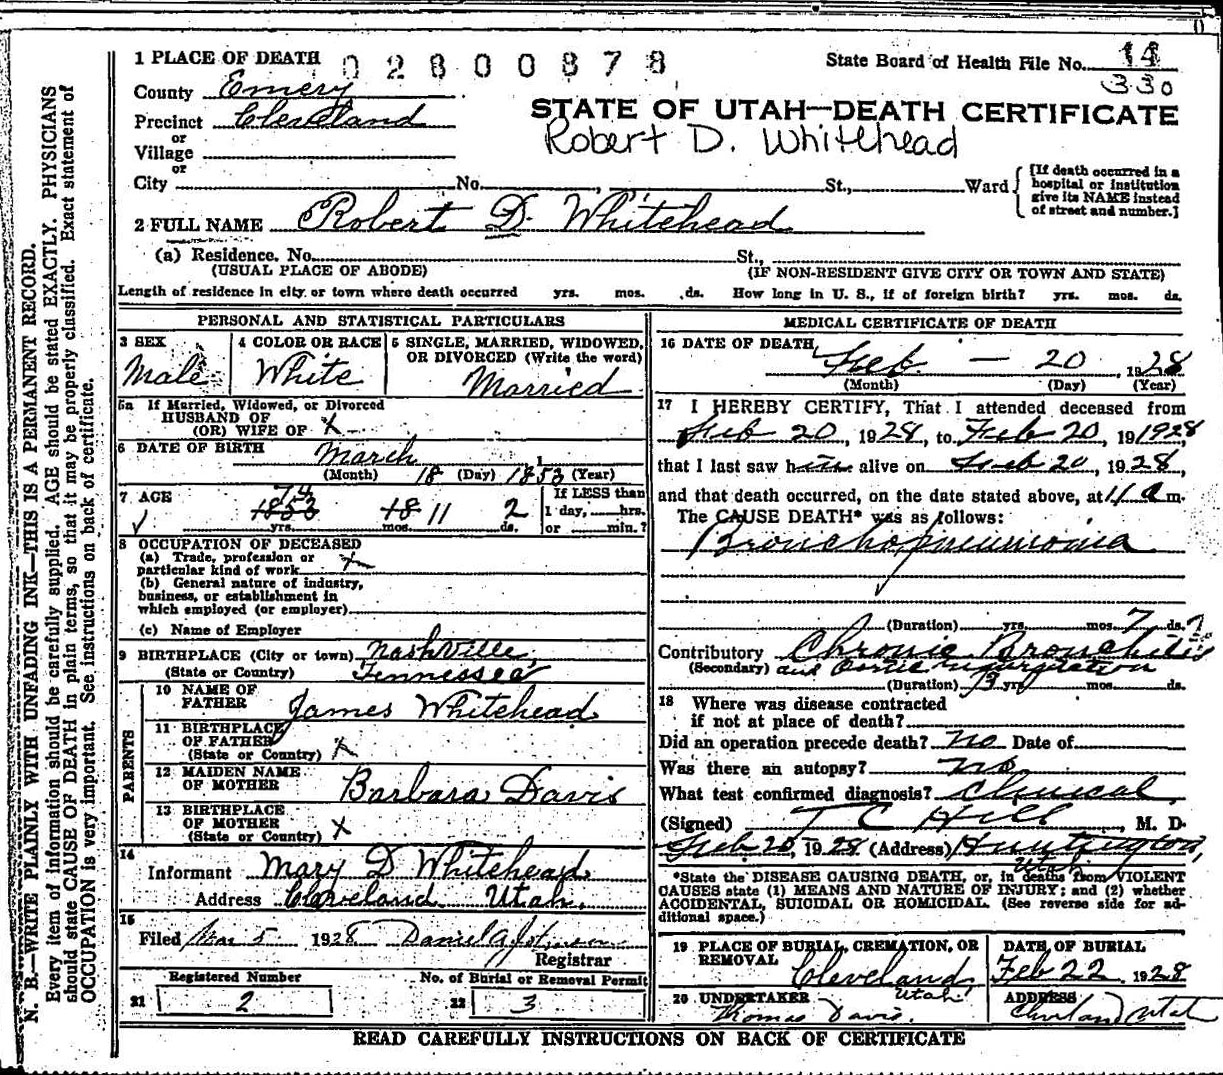 1 PLACE OF DEATH 02800878
State Board of Health File No. 14
330
County Emery
STATE OF UTAH—DEATH CERTIFICATE
Precinct Cleveland
Robert D. Whitehead
or
Village
or
City No. , St., Ward
[If death occurred in a
hospital or institution
give its NAME instead
of street and number.]
2 FULL NAME Robert D. Whitehead
(a) Residence. No. St.,
(USUAL PLACE OF ABODE) (IF NON-RESIDENT GIVE CITY OR TOWN AND STATE)
Length of residence in city or town where death occurred yrs. mos. ds. How long in U. S., if of foreign birth? yrs. mos. ds.
PERSONAL AND STATISTICAL PARTICULARS
3 SEX
Male
4 COLOR OR RACE
White
5 SINGLE, MARRIED, WIDOWED,
OR DIVORCED (Write the word)
Married
5a If Married, Widowed, or Divorced
HUSBAND OF
(OR) WIFE OF X
6 DATE OF BIRTH March
(Month) 18 (Day) 1853 (Year)
7 AGE
1853 18 11 2
yrs. mos. ds.
If LESS than
1 day, hrs.
or min.?
8 OCCUPATION OF DECEASED
(a) Trade, profession or
particular kind of work X
(b) General nature of industry,
business, or establishment in
which employed (or employer)
(c) Name of Employer
9 BIRTHPLACE (City or town) Nashville,
(State or Country) Tennessee
PARENTS
10 NAME OF
FATHER James Whitehead
11 BIRTHPLACE
OF FATHER
(State or Country) X
12 MAIDEN NAME
OF MOTHER Barbara Davis
13 BIRTHPLACE
OF MOTHER
(State or Country) X
14
Informant Mary D Whitehead
Address Cleveland Utah.
15
Filed Mar 5 1928 Daniel A Johnson
Registrar
Registered Number
21 2
No. of Burial or Removal Permit
22 3
MEDICAL CERTIFICATE OF DEATH
16 DATE OF DEATH Feb — 20, 1928
(Month) (Day) (Year)
17 I HEREBY CERTIFY, That I attended deceased from
Feb 20, 1928, to Feb 20, 191928
that I last saw him alive on Feb 20, 1928,
and that death occurred, on the date stated above, at 11 a m.
The CAUSE DEATH* was as follows:
Bronchopneumonia
(Duration) yrs. mos. 7 ds.
Contributory Chronic Bronchitis
(Secondary) and Aortic regurgitation
(Duration) yrs. mos. ds.
18 Where was disease contracted
if not at place of death?
Did an operation precede death? no Date of
Was there an autopsy? no
What test confirmed diagnosis? Clinical
(Signed) T C Hill, M. D.
Feb 20, 1928 (Address) Huntington,
Utah
*State the DISEASE CAUSING DEATH, or, in deaths from VIOLENT
CAUSES state (1) MEANS AND NATURE OF INJURY; and (2) whether
ACCIDENTAL, SUICIDAL OR HOMICIDAL. (See reverse side for ad-
ditional space.)
19 PLACE OF BURIAL, CREMATION, OR
REMOVAL Cleveland,
Utah
DATE OF BURIAL
Feb 22 1928
20 UNDERTAKER
Thomas Davis.
ADDRESS
Cleveland Utah
READ CAREFULLY INSTRUCTIONS ON BACK OF CERTIFICATE
N. B.—WRITE PLAINLY WITH UNFADING INK—THIS IS A PERMANENT RECORD.
Every item of information should be carefully supplied. AGE should be stated EXACTLY. PHYSICIANS
should state CAUSE OF DEATH in plain terms, so that it may be properly classified. Exact statement of
OCCUPATION is very important. See instructions on back of certificate.